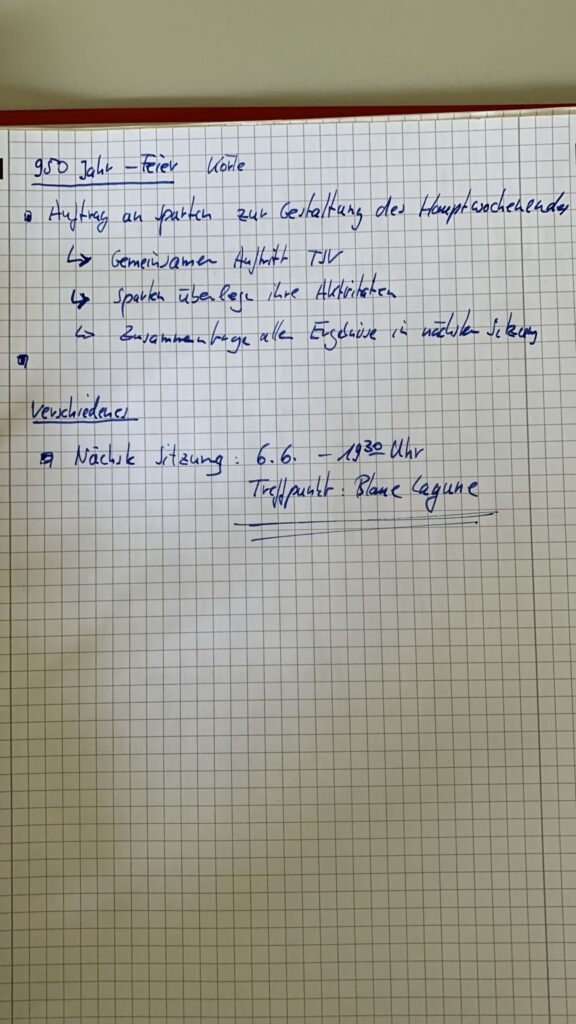 950 Jahr-Feier Körle
Auftrag an Sparten zur Gestaltung des Hauptwochenendes
↳ Gemeinsamen Auftritt TSV
↳ Sparten überlege ihre Aktivitäten
↳ Zusammentrage aller Ergebnisse in nächsten Sitzung
Verschiedenes
Nächste Sitzung: 6.6. - 19³⁰ Uhr
Treffpunkt: Blaue Lagune